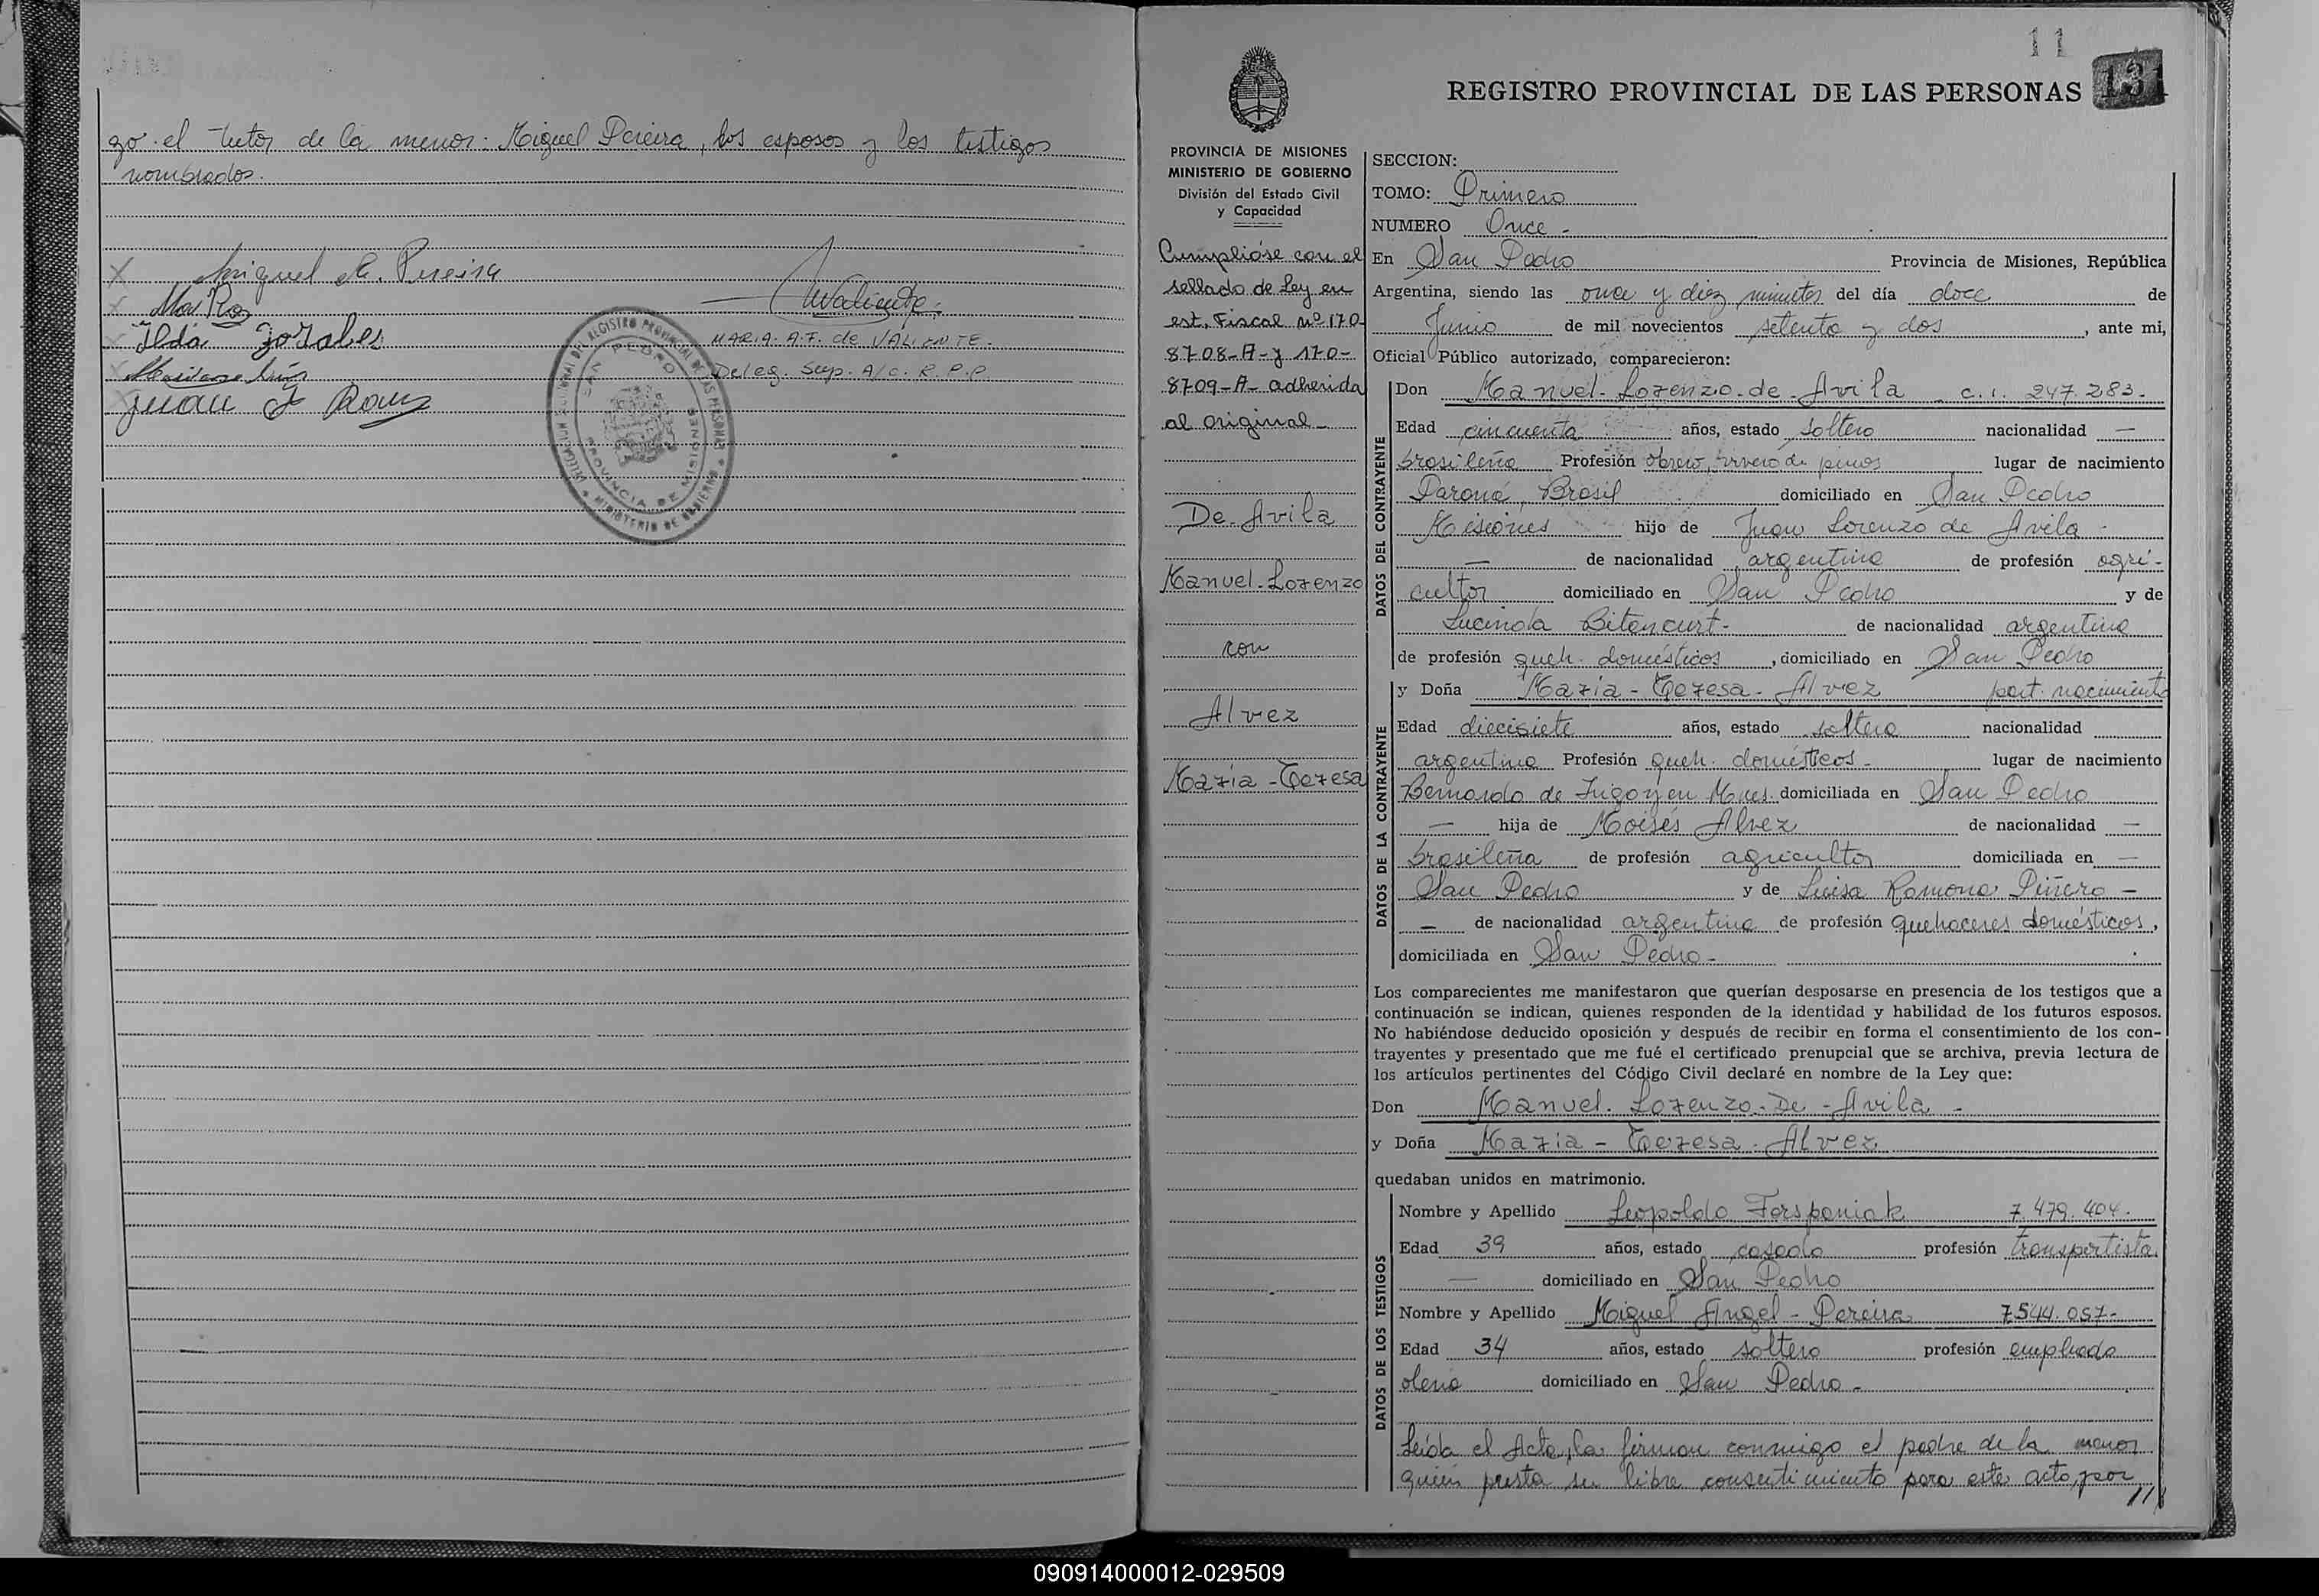 go el tutor de la menor: Miguel Pereira, los esposos y los testigos
nombrados.
Miguel A. Pereira
Ilda Zorales
MARIA. A.F. de VALIENTE.
Deleg. Sup. A/c. R.P.P.
SAN PEDRO
PROVINCIA DE MISIONES
MINISTERIO DE GOBIERNO
11
131
REGISTRO PROVINCIAL DE LAS PERSONAS
PROVINCIA DE MISIONES
MINISTERIO DE GOBIERNO
División del Estado Civil
y Capacidad
Cumplióse con el
sellado de Ley en
est. Fiscal Nº 170-
8708-A-y 170-
8709-A- adherida
al original-
De Avila
Manuel-Lorenzo
con
Alvez
Maria-Teresa
SECCION:
TOMO: Primero
NUMERO Once -
En San Pedro Provincia de Misiones, República
Argentina, siendo las once y diez minutos del día doce de
Junio de mil novecientos setenta y dos, ante mi,
Oficial Público autorizado, comparecieron:
DATOS DEL CONTRAYENTE
Don Manuel-Lorenzo-de-Avila c.i. 247.283-
Edad cincuenta años, estado soltero nacionalidad —
brasileña Profesión obrero, vivero de pinos lugar de nacimiento
Paraná, Brasil domiciliado en San Pedro
Misiones hijo de Juan Lorenzo de Avila -
— de nacionalidad argentina de profesión agri-
cultor domiciliado en San Pedro y de
Lucinda Bitencurt- de nacionalidad argentina
de profesión queh. domésticos, domiciliado en San Pedro
DATOS DE LA CONTRAYENTE
y Doña Maria-Teresa-Alvez part. nacimiento
Edad diecisiete años, estado soltera nacionalidad
argentina Profesión queh. domésticos- lugar de nacimiento
Bernardo de Irigoyen Mnes. domiciliada en San Pedro
— hija de Moisés Alvez de nacionalidad —
brasileña de profesión agricultor domiciliada en —
San Pedro y de Luisa Ramona Piñero —
— de nacionalidad argentina de profesión quehaceres domésticos,
domiciliada en San Pedro-
Los comparecientes me manifestaron que querían desposarse en presencia de los testigos que a
continuación se indican, quienes responden de la identidad y habilidad de los futuros esposos.
No habiéndose deducido oposición y después de recibir en forma el consentimiento de los con-
trayentes y presentado que me fué el certificado prenupcial que se archiva, previa lectura de
los artículos pertinentes del Código Civil declaré en nombre de la Ley que:
Don Manuel-Lorenzo-De-Avila-
y Doña Maria-Teresa-Alvez
quedaban unidos en matrimonio.
DATOS DE LOS TESTIGOS
Nombre y Apellido Leopoldo Ferspaniak 7.479.404.
Edad 39 años, estado casado profesión transportista
— domiciliado en San Pedro
Nombre y Apellido Miguel Angel-Pereira 7544.057-
Edad 34 años, estado soltero profesión empleado
domiciliado en San Pedro-
Leída el Acta, la firman conmigo el padre de la menor
quien presta su libre consentimiento para este acto, por
090914000012-029509